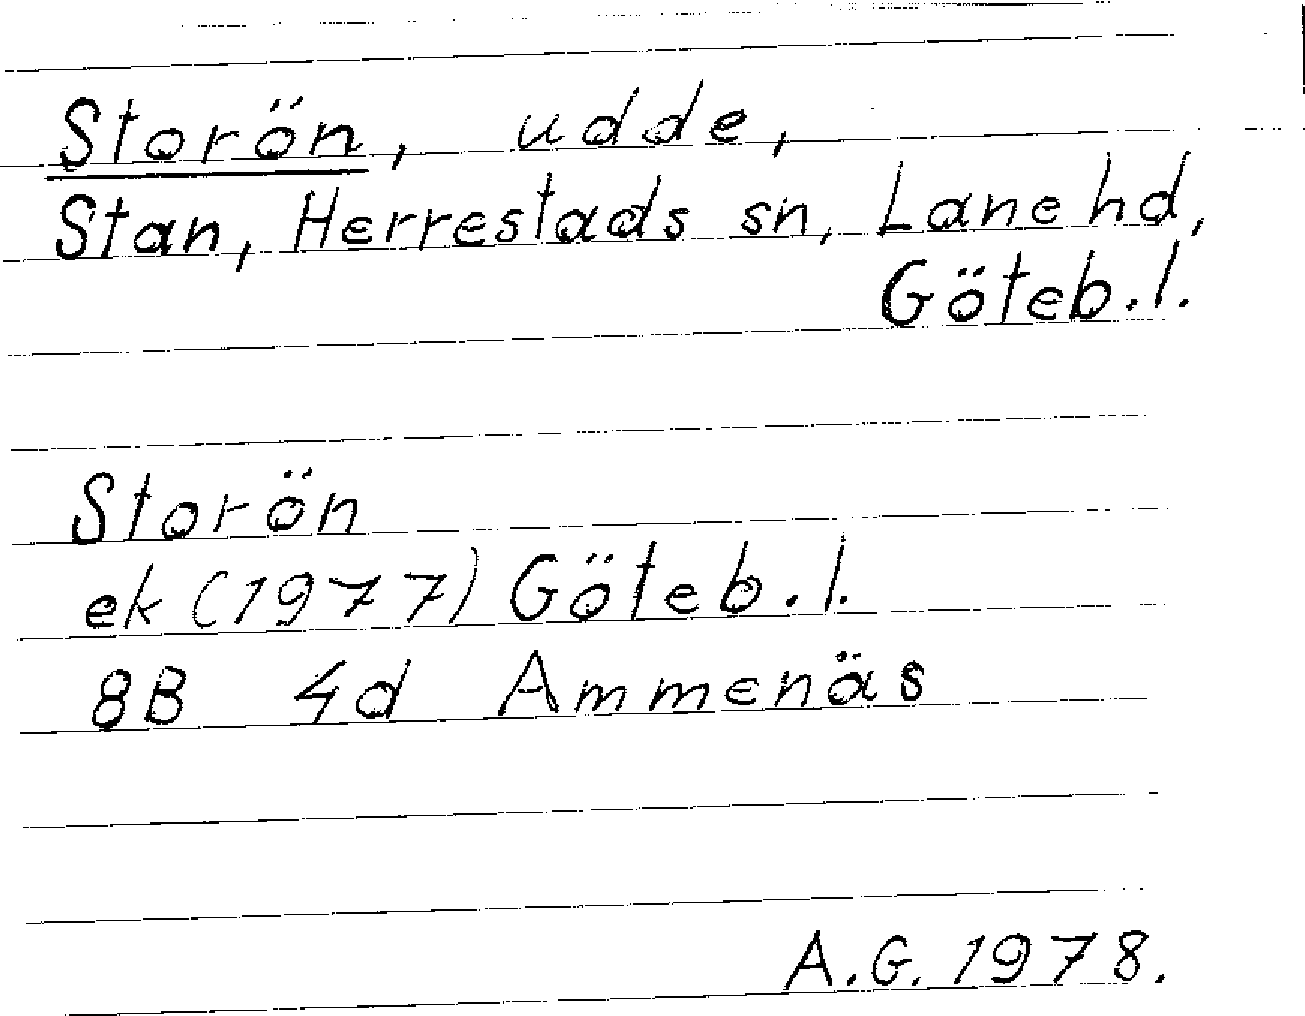 Storön, udde,
Stan, Herrestads sn, Lane hd,
Göteb.l.
Storön
ek (1977) Göteb.l.
8B 4d Ammenäs
A.G. 1978.